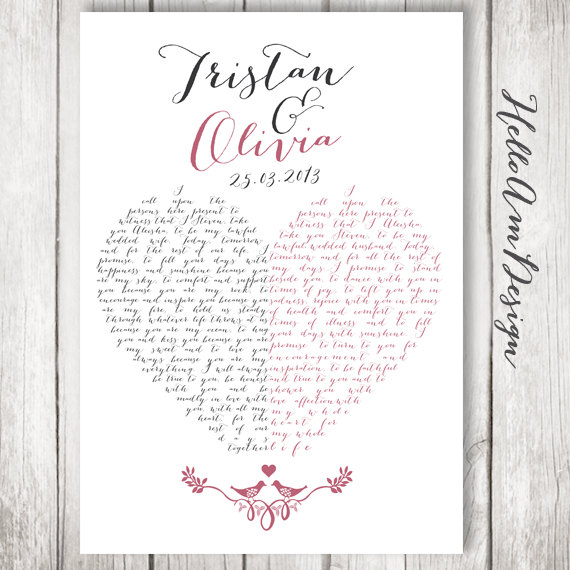 Tristan
&
Olivia
25.03.2013
I
call upon the
persons here present to
witness that I Steven, take
you Aleisha, to be my lawful
wedded wife. Today, tomorrow
and for the rest of our life, I
promise, to fill your days with
happiness and sunshine because you
are my sky, to comfort and support
you because you are my rock, to
encourage and inspire you because you
are my fire, to hold us steady
through whatever life throws at us
because you are my ocean, to hug
you and kiss you because you are
my sweet and to love you
always because you are my
everything. I will always
be true to you, be honest
with you and be
madly in love with
you, with all my
heart, for the
rest of our
days
together
I
call upon the
persons here present to
witness that I Aleisha,
take you Steven, to be my
lawful wedded husband. Today,
tomorrow, and for all the rest of
my days, I promise to stand
beside you, to dance with you in
times of joy, to lift you up in
sadness, rejoice with you in times
of health and comfort you in
times of illness and to fill
your days with sunshine. I
promise to turn to you for
encouragement and
inspiration, to be faithful
and true to you and to
shower you with
love affection with
my whole
heart for
my whole
life
HelloAmDesign